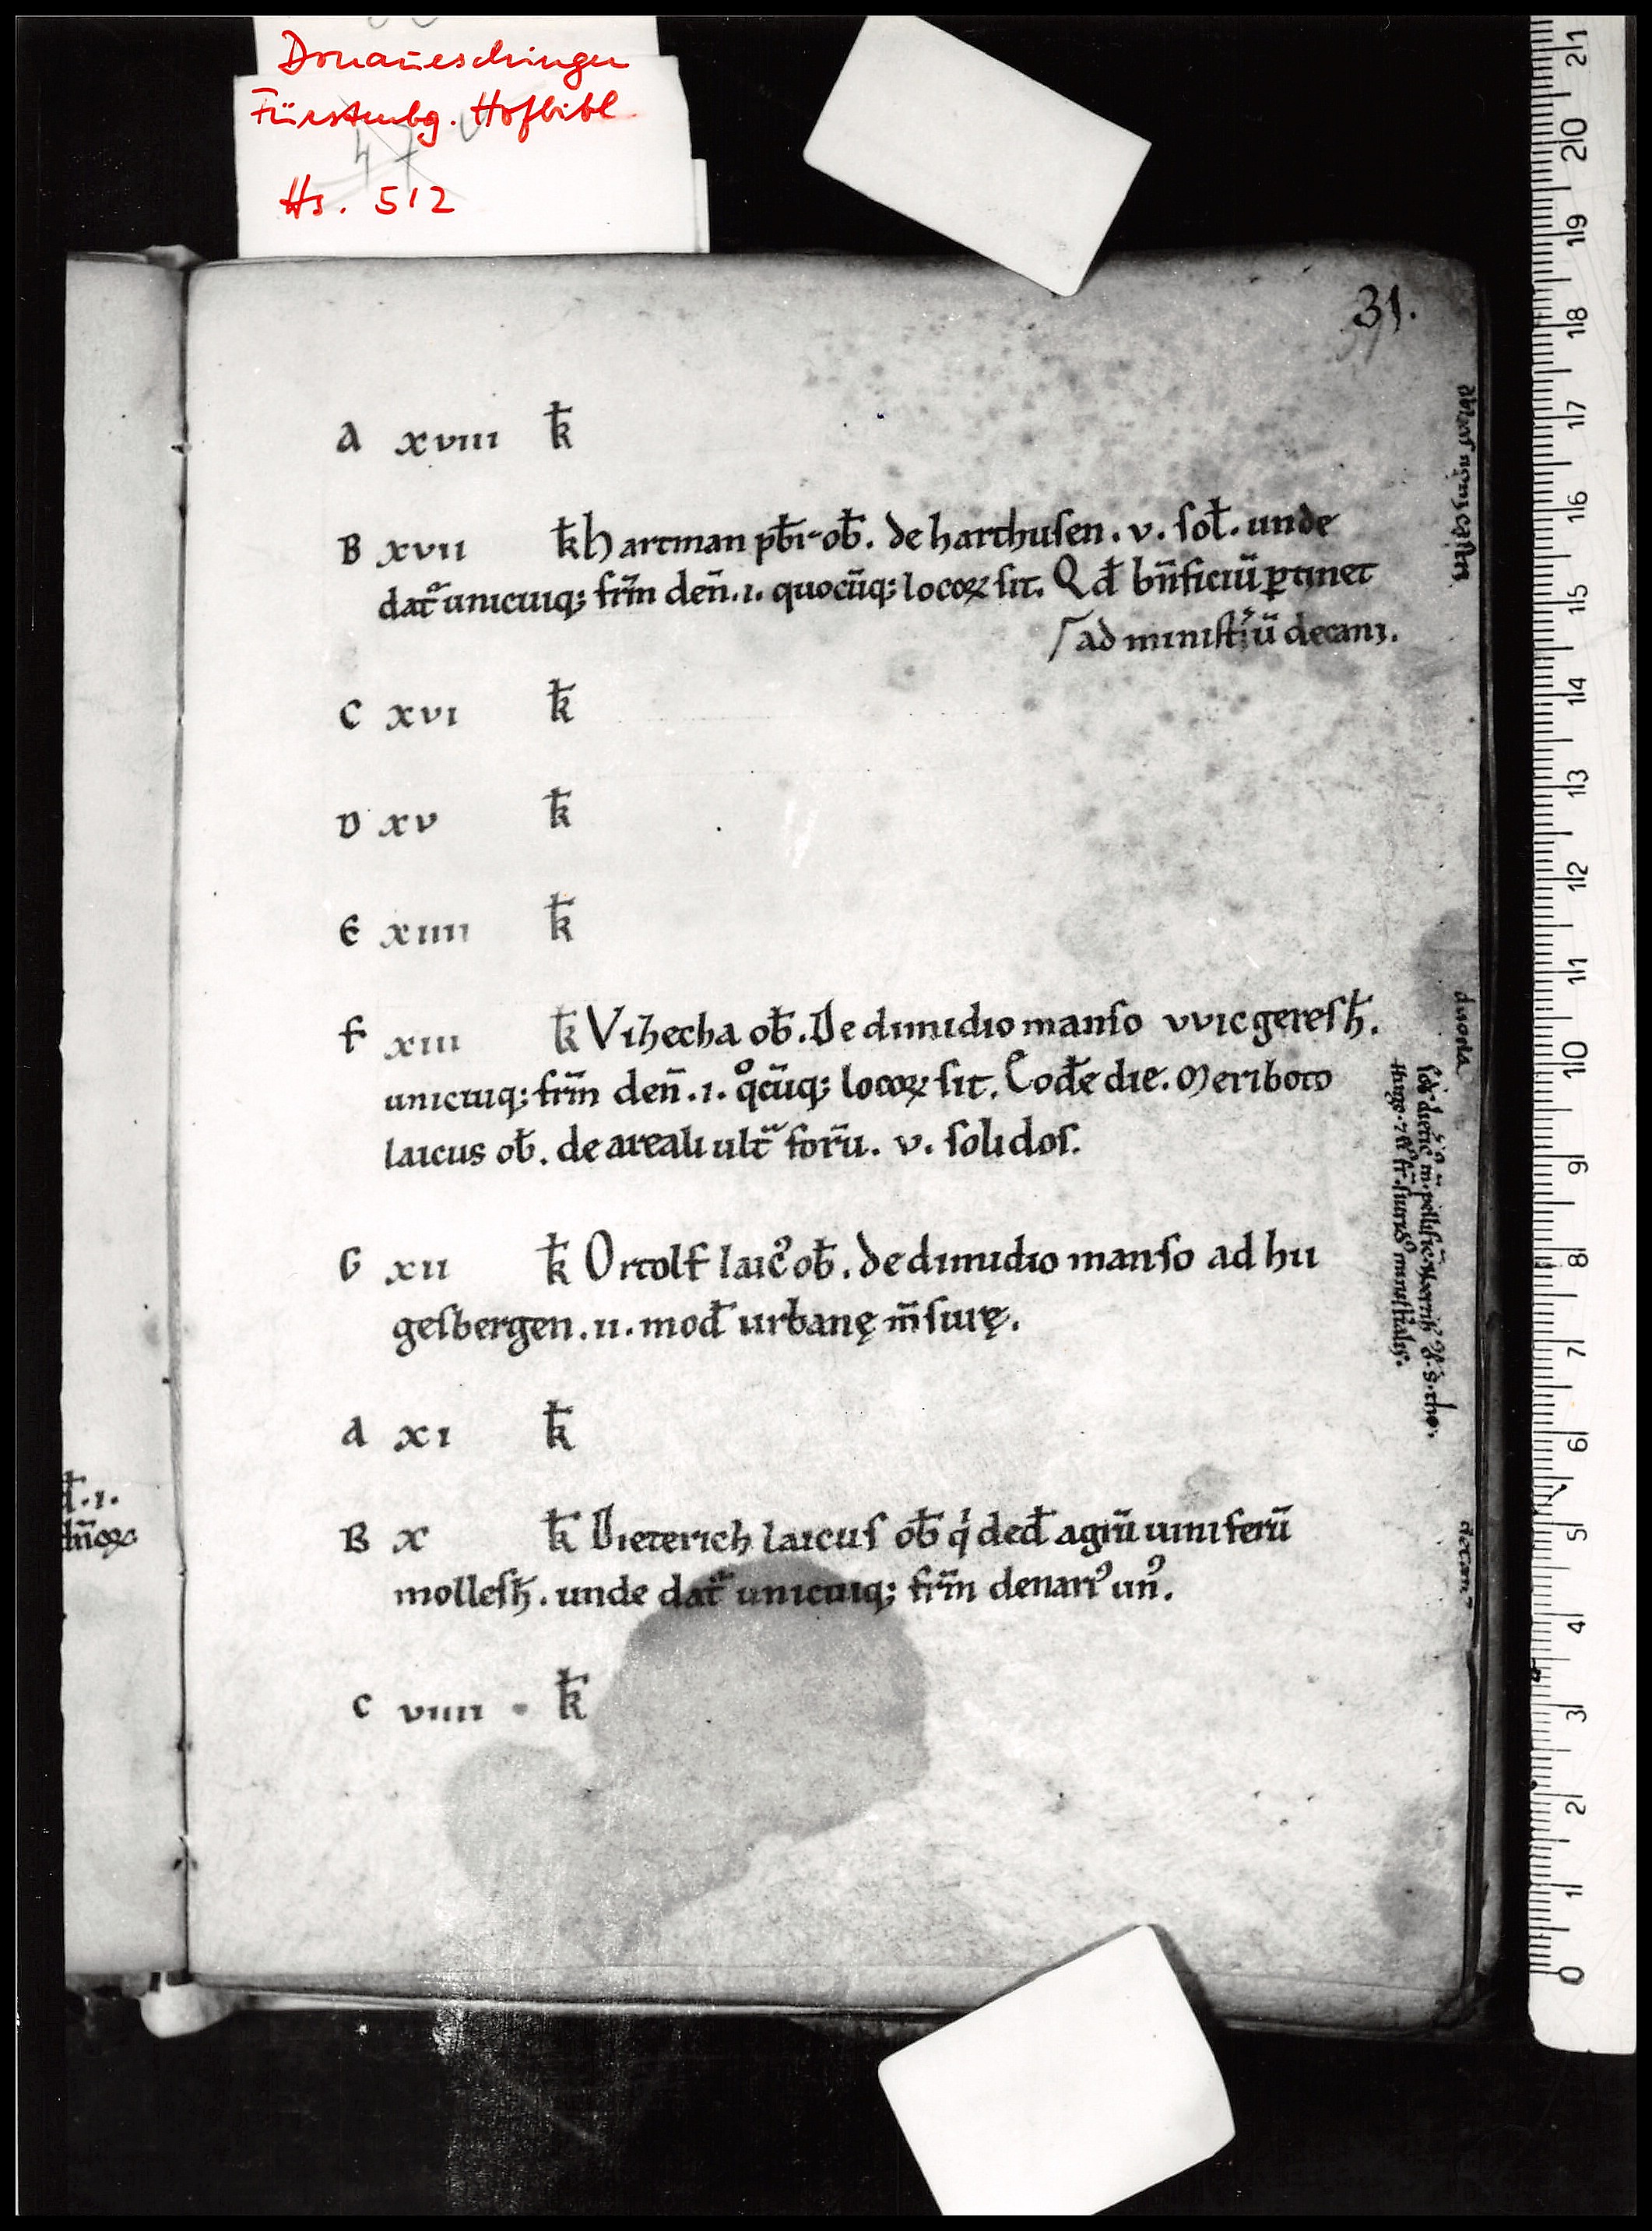 Donaueschingen
Fürstenbg. Hofbibl
47
Hs. 512
31.
A xviii k̄
B xvii k̄ hartman pb̄r ob̄. de harthusen. v. sol̄. unde
datᷓ unicuiq; frm̄ den̄. i. quocūq; locoꝝ sit. Qd̄ bn̄ficiū ꝑtinet
ad ministˢiū decani.
C xvi k̄
D xv k̄
E xiiii k̄
F xiii k̄ Vihecha ob̄. De dimidio manso vvicgeresh̄.
unicuiq; frm̄ den̄. i. qͦcūq; locoꝝ sit. Eodē die. Meriboto
laicus ob̄. de areali ultᷓ forū. v. solidos.
G xii k̄ Ortolf laicꝰ ob̄. de dimidio manso ad hu
gesbergen. ii. mod̄ urbanę m̄surę.
A xi k̄
B x k̄ Dieterich laicus ob̄ qͥ ded̄ agrū uiniferū
mollesh̄. unde datᷓ unicuiq; frm̄ denariꝰ unꝰ.
C viiii k̄
d̄. i.
decanꝰ
21 20 19 18 17 16 15 14 13 12 11 10 9 8 7 6 5 4 3 2 1 0